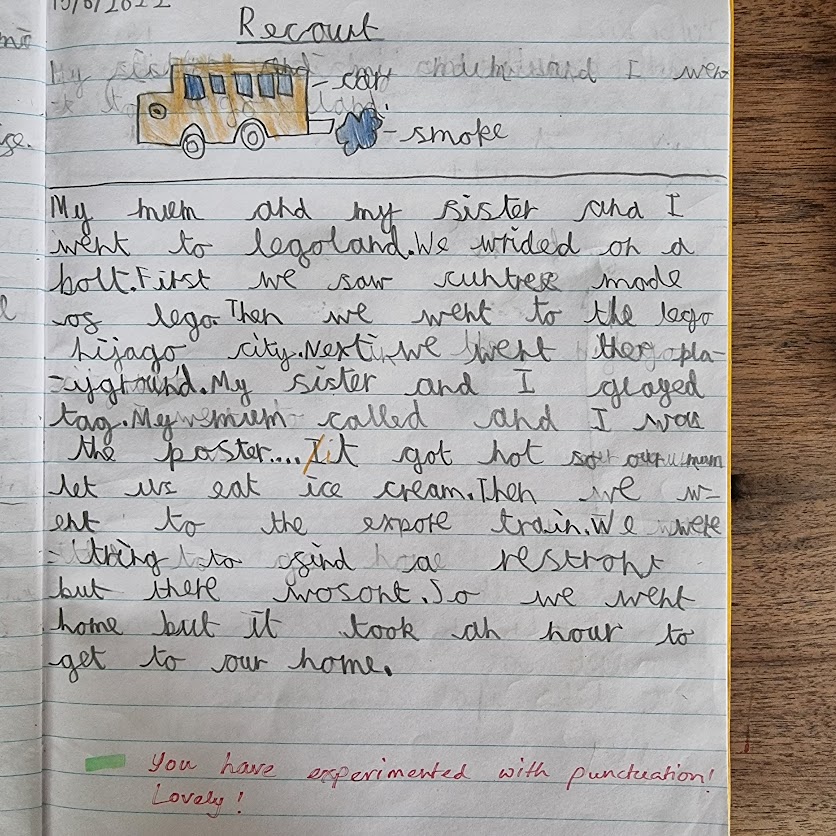 Recount
car
smoke
My mum and my sister and I
went to legoland.We wrided on a
bolt.First we saw cuntres made
os lego.Then we went to the lego
nijago city.Next we went the pla-
yground.My sister and I played
tag.My mum called and I was
the poster....it got hot so our mum
let us eat ice cream.Then we w-
ent to the expore train.We were
tring to find a restront
but there wosont.So we went
home but it took an hour to
get to our home.
You have experimented with punctuation!
Lovely!